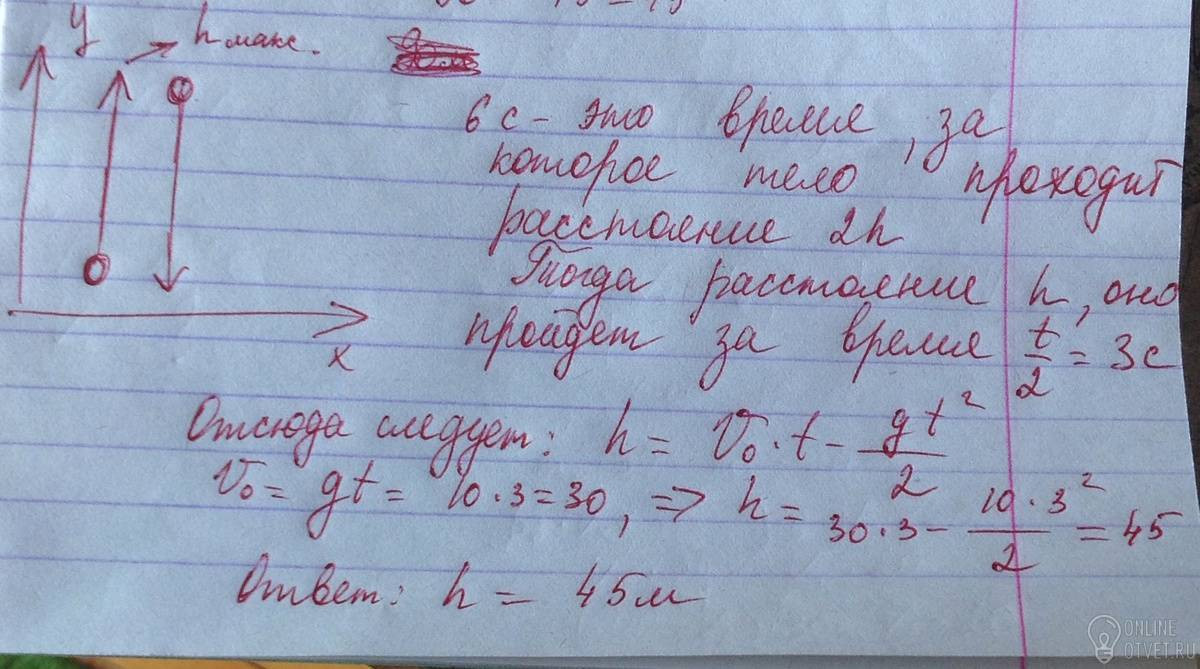 y
h макс.
6 с - это время, за
которое тело проходит
расстояние 2h
Тогда расстояние h, оно
пройдет за время t/2 = 3с
x
Отсюда следует: h = V₀·t - gt²/2
V₀ = gt = 10·3=30, => h = 30·3 - 10·3²/2 = 45
Ответ: h = 45м
ONLINE
OTVET.RU